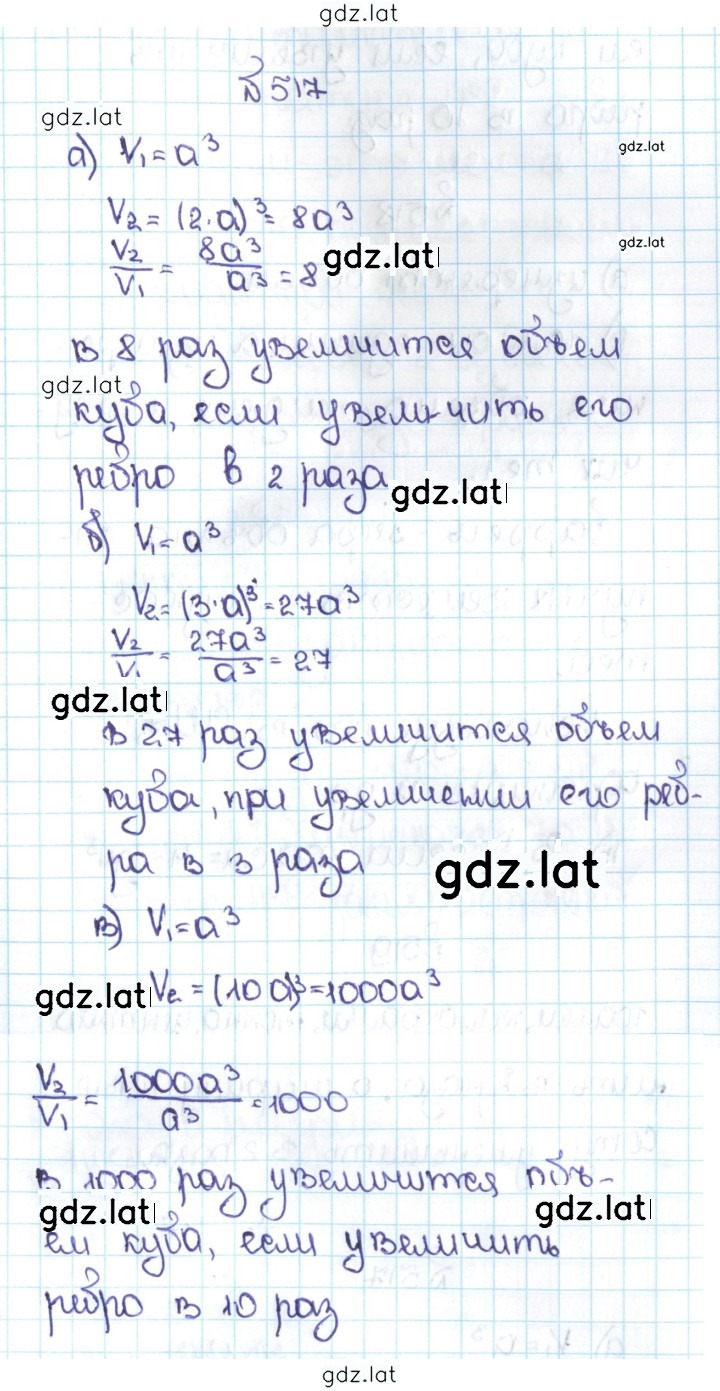 gdz.lat
№517
gdz.lat
а) V₁ = a³
gdz.lat
V₂ = (2·a)³ = 8a³
gdz.lat
V₂/V₁ = 8a³/a³ = 8
gdz.lat
в 8 раз увеличится объем
gdz.lat
куба, если увеличить его
ребро в 2 раза
gdz.lat
б) V₁ = a³
V₂ = (3·a)³ = 27a³
V₂/V₁ = 27a³/a³ = 27
gdz.lat
в 27 раз увеличится объем
куба, при увеличении его реб-
ра в 3 раза
gdz.lat
в) V₁ = a³
gdz.lat
V₂ = (10a)³ = 1000a³
V₂/V₁ = 1000a³/a³ = 1000
в 1000 раз увеличится объ-
gdz.lat
gdz.lat
ем куба, если увеличить
ребро в 10 раз
gdz.lat